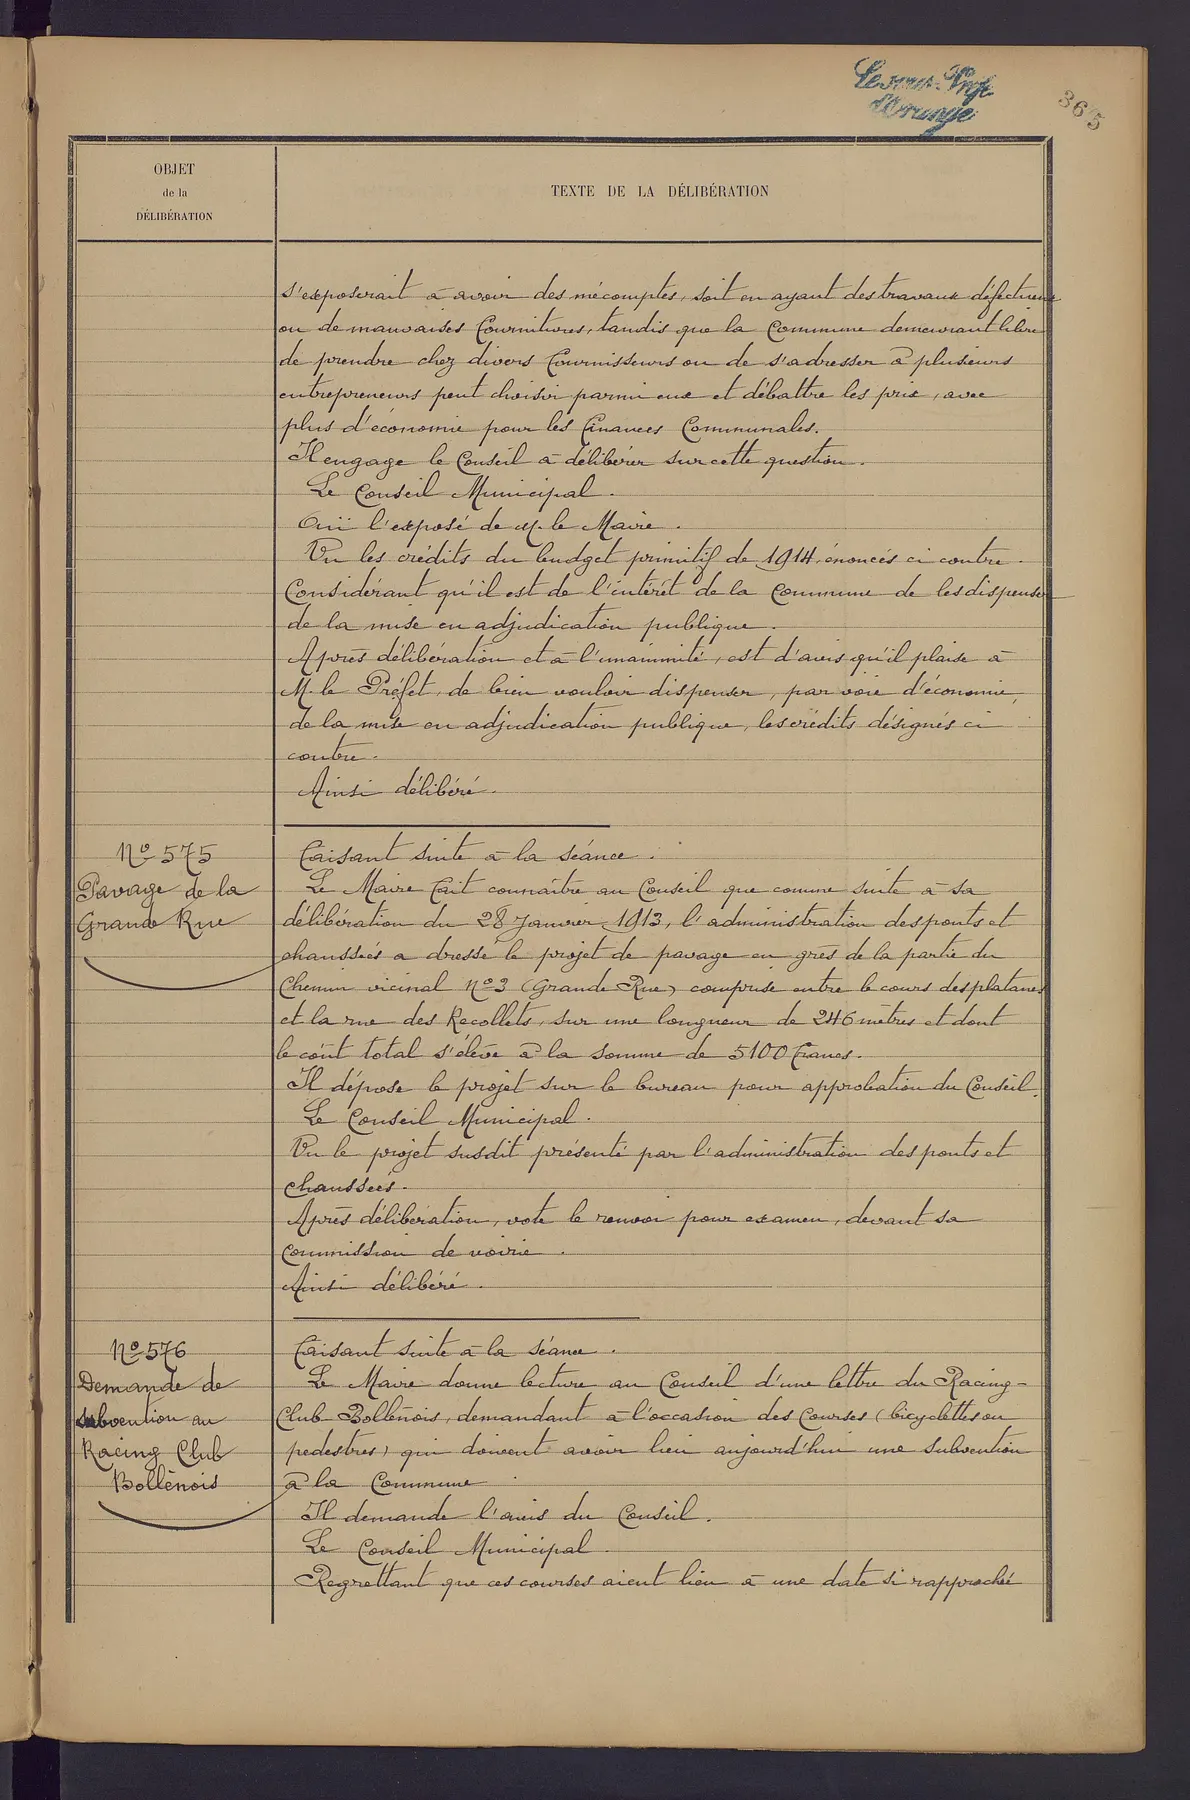 Le sous-Préfet
d'Orange
365
OBJET
de la
DÉLIBÉRATION
TEXTE DE LA DÉLIBÉRATION
s'exposerait à avoir des mécomptes, soit en ayant des travaux défectueux
ou de mauvaises fournitures, tandis que la Commune demeurant libre
de prendre chez divers fournisseurs ou de s'adresser à plusieurs
entrepreneurs peut choisir parmi eux et débattre les prix, avec
plus d'économie pour les finances Communales.
Il engage le Conseil à délibérer sur cette question.
Le Conseil Municipal.
Ouï l'exposé de M. le Maire.
Vu les crédits du budget primitif de 1914, énoncés ci contre.
Considérant qu'il est de l'intérêt de la Commune de les dispenser
de la mise en adjudication publique.
Après délibération et à l'unanimité, est d'avis qu'il plaise à
M. le Préfet, de bien vouloir dispenser, par voie d'économie,
de la mise en adjudication publique, les crédits désignés ci
contre.
Ainsi délibéré.
No 575
Pavage de la
Grande Rue
Faisant suite à la séance.
Le Maire fait connaître au Conseil que comme suite à sa
délibération du 28 Janvier 1913, l'administration des ponts et
chaussées a dressé le projet de pavage en grès de la partie du
Chemin vicinal No 3 (Grande Rue) comprise entre le cours des platanes
et la rue des Recollets, sur une longueur de 246 mètres et dont
le coût total s'élève à la somme de 5100 francs.
Il dépose le projet sur le bureau pour approbation du Conseil.
Le Conseil Municipal.
Vu le projet susdit présenté par l'administration des ponts et
chaussées.
Après délibération, vote le renvoi pour examen, devant sa
commission de voirie.
Ainsi délibéré.
No 576
Demande de
subvention au
Racing Club
Bollènois
Faisant suite à la séance.
Le Maire donne lecture au Conseil d'une lettre du Racing-
Club Bollènois, demandant à l'occasion des Courses (bicyclettes ou
pedestres) qui doivent avoir lieu aujourd'hui une subvention
à la Commune
Il demande l'avis du Conseil.
Le Conseil Municipal.
Regrettant que ces courses aient lieu à une date si rapprochée